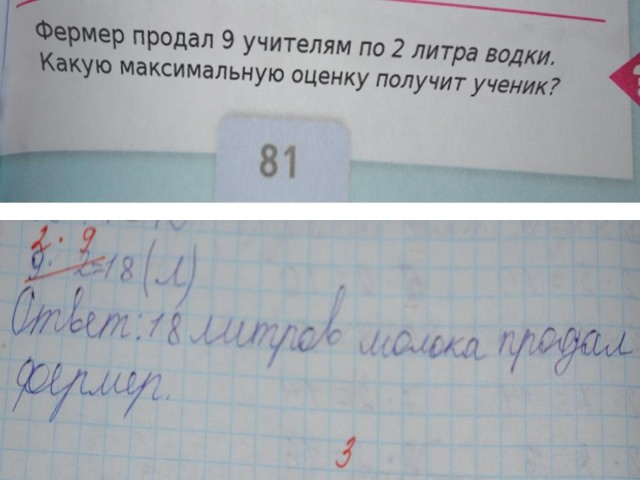 Фермер продал 9 учителям по 2 литра водки.
Какую максимальную оценку получит ученик?
81
2 · 9
9 · 2=18 (л)
Ответ: 18 литров молока продал
фермер.
3